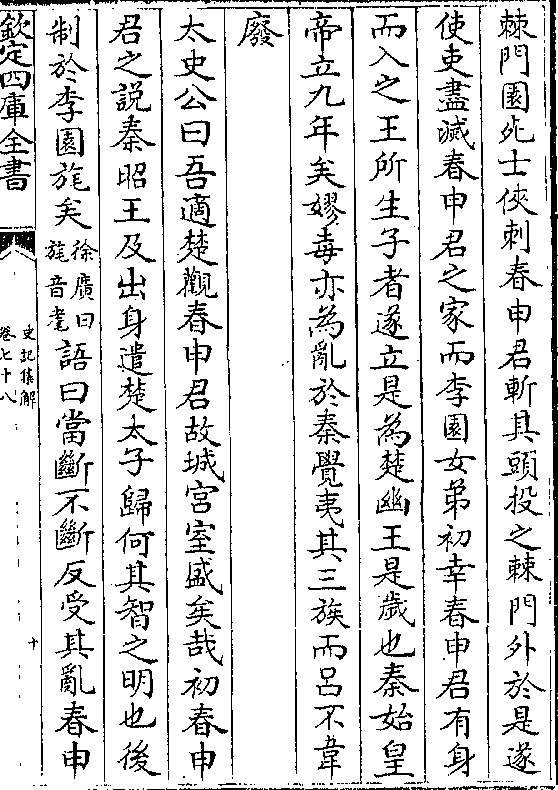 棘門園死士俠刺春申君斬其頭投之棘門外於是遂
使吏盡滅春申君之家而李園女弟初幸春申君有身
而入之王所生子者遂立是為楚幽王是歲也秦始皇
帝立九年矣嫪毐亦為亂於秦覺夷其三族而呂不韋
廢
太史公曰吾適楚觀春申君故城宮室盛矣哉初春申
君之說秦昭王及出身遣楚太子歸何其智之明也後
制於李園旄矣徐廣曰旄音耄語曰當斷不斷反受其亂春申
欽定四庫全書
史記集解
卷七十八
十